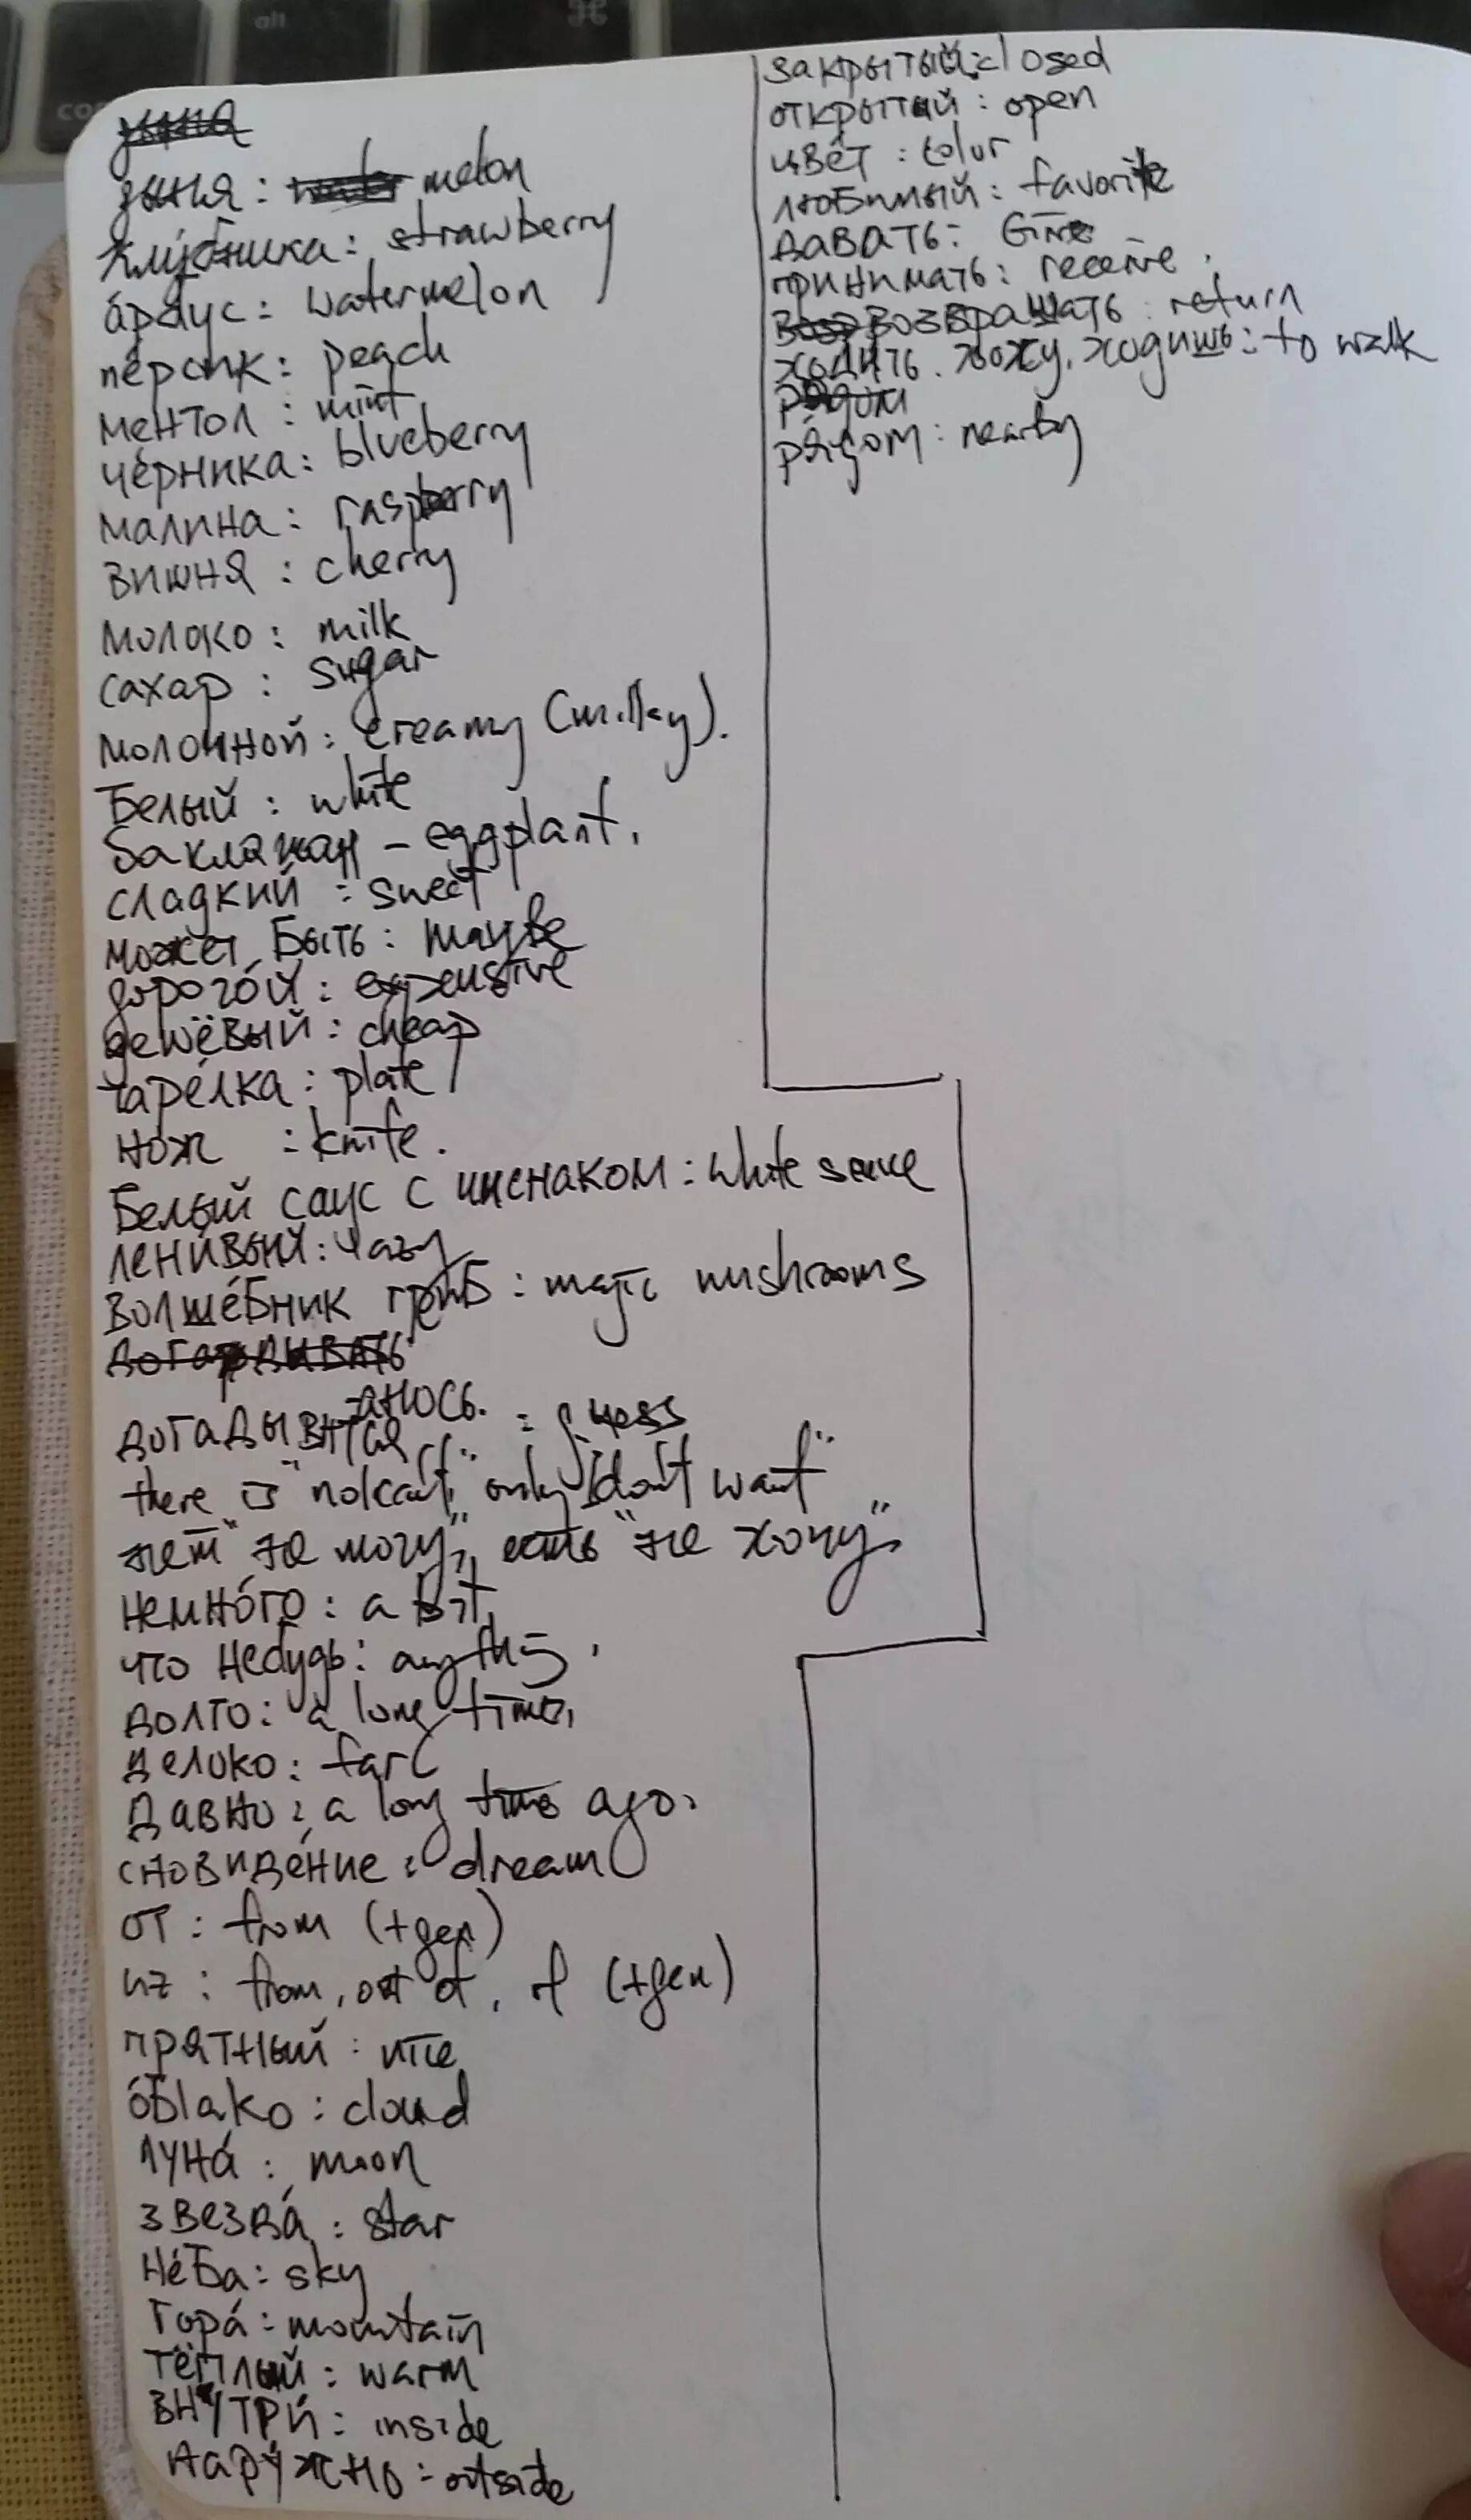 дыня : melon
клубника : strawberry
арбус : watermelon
персик : peach
ментол : mint
чёрника : blueberry
малина : raspberry
вишня : cherry
молоко : milk
сахар : sugar
молочной : creamy (milky).
Белый : white
баклажан - eggplant.
сладкий : sweet
может Быть : maybe
дорогóй : expensive
дешёвый : cheap
тарéлка : plate
нож : knife.
Белый саус с : white sauce
ленúвый : lazy
волшéБник гриБ : magic mushrooms
-аюсь.
: guess
there is "no I can't", only "I don't want"
нет "не могу", есть "не хочу".
немнóго : a bit,
что небудь : anything.
долго : a long time,
делоко : far
давно : a long time ago.
сновидéние : dream
от : from (+gen)
из : from, out of, of (+gen)
прятный : nice
óблako : cloud
лунá : moon
звездá : star
нéБа : sky
горá : mountain
тёплый : warm
внутрú : inside
наружно : outside
закрытый : closed
открытый : open
цвет : color
люБимый : favorite
давать : Give
принимать : receive.
возвращать : return
ходить. хожу. ходишь : to walk
рядом
ря́дом : nearby